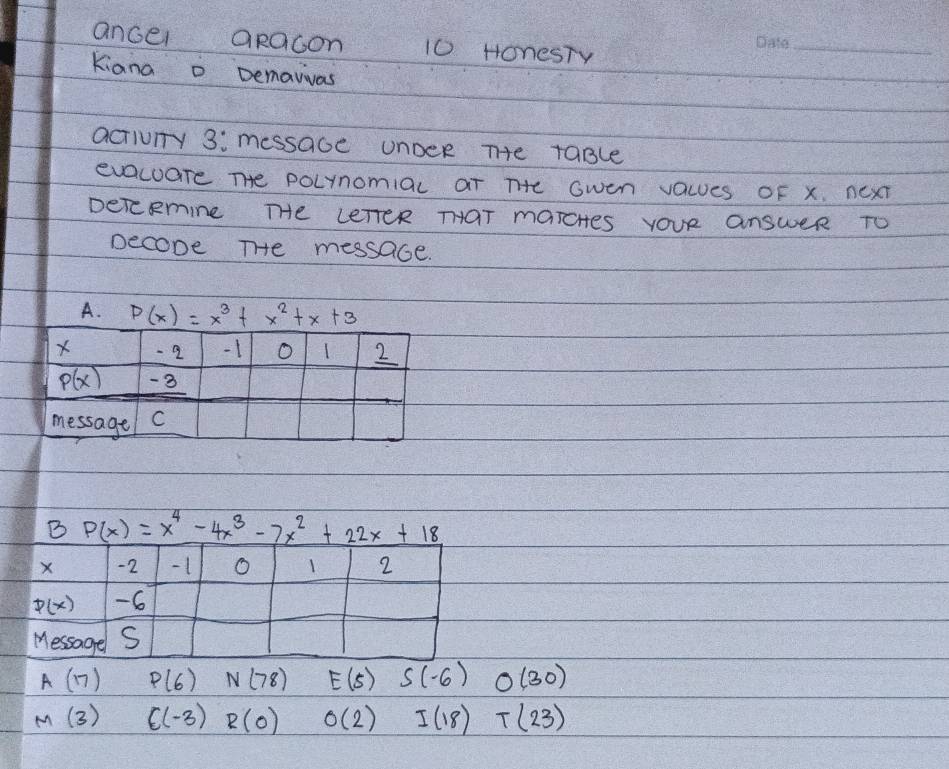 angel aragon 10 Honesty
Date
Kiana D Demavivas
activity 3: message under the table
evaluate the polynomial at the given values of x. next
determine the letter that matches your answer to
decode the message.
A. P(x) = x³ + x² + x + 3
x -2 -1 0 1 2
P(x) -3
message C
B P(x) = x⁴ - 4x³ - 7x² + 22x + 18
x -2 -1 0 1 2
P(x) -6
Message S
A (17) P(6) N(78) E(5) S(-6) O(30)
M (3) C(-3) R(0) O(2) I(18) T(23)